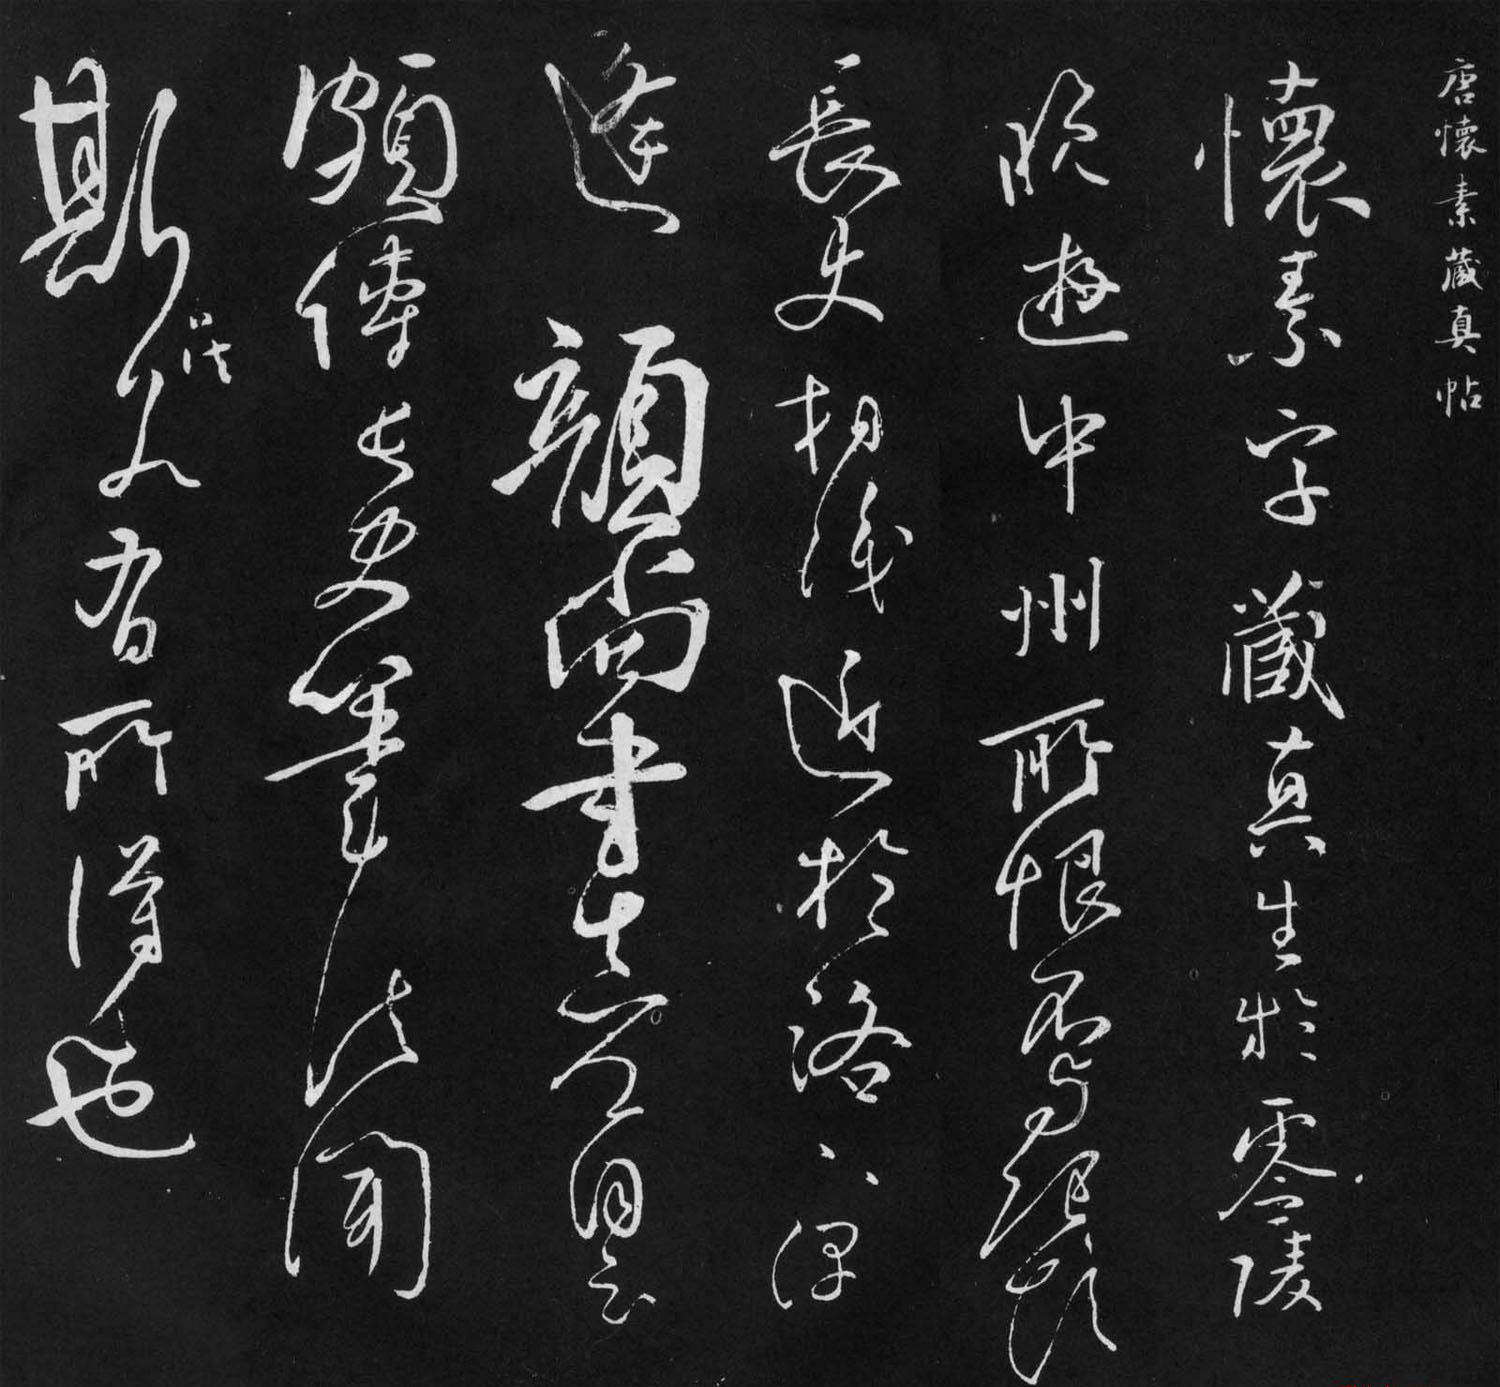 唐懷素藏真帖
懷素字藏真生於零陵
晚遊中州所恨不與張顛
長史相識近於洛下偶
逢顏尚書真卿自云
頗傳長史筆法聞
斯八法若有所得也